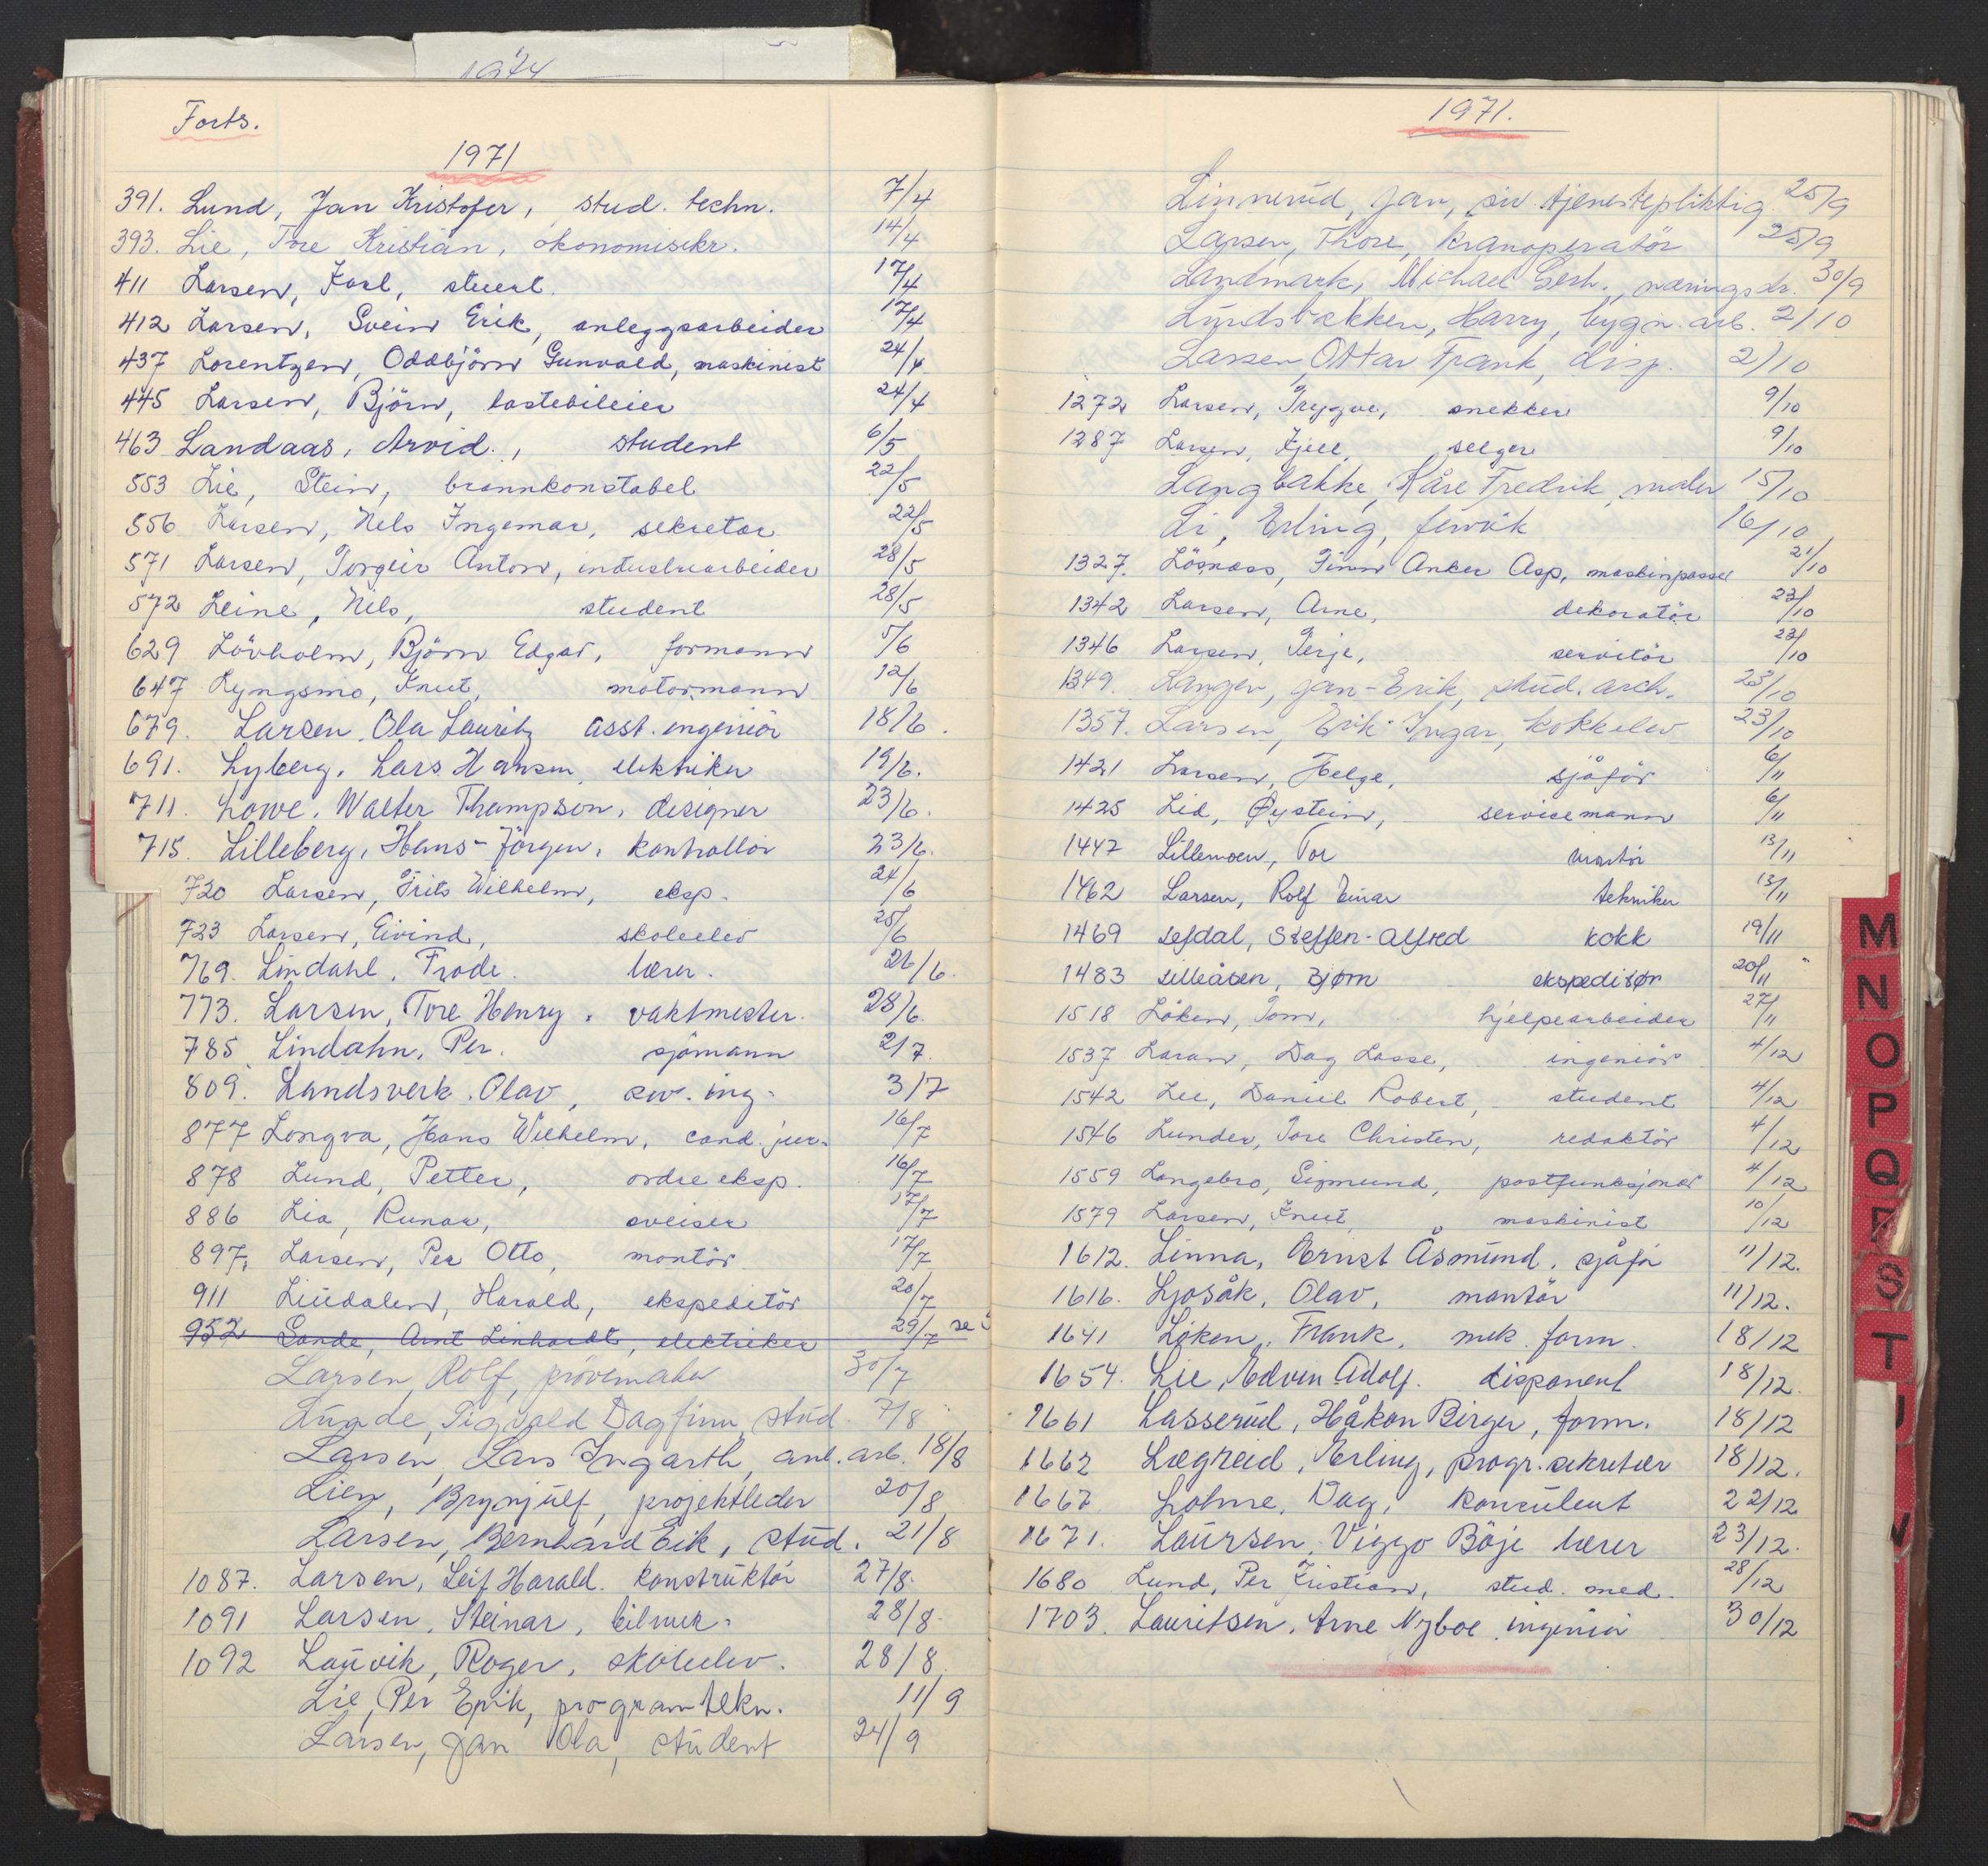 1974
Forts.
1971
391. Lund, Jan Kristofer, stud. techn. 7/4
393. Lie, Tore Kristian, økonomisekr. 14/4
411 Larsen, Karl, stuert 17/4
412 Larsen, Svein Erik, anleggsarbeider 17/4
437 Lorentzen, Oddbjörn Gunvald, maskinist 24/4
445 Larsen, Björn, lastebileier 24/4
463 Landaas, Arvid, student 6/5
553 Lie, Stein, brannkonstabel 22/5
556 Larsen, Nels Ingemar, sekretær 22/5
571 Larsen, Torgeir Anton, industriarbeider 28/5
572 Leine, Nils, student 28/5
629 Lövholm, Björn Edgar, formann 5/6
647 Lyngsmo, Knut, motormann 12/6
679. Larsen, Ola Lauritz asst. ingeniör 18/6.
691. Lyberg, Lars Hansen, elektriker 19/6.
711. Lowe, Walter Thampson, designer 23/6.
715. Lilleberg, Hans-Jörgen, kontrollör 23/6.
720 Larsen, Frits Wilhelm, eksp. 24/6
723 Larsen, Eivind, skoleelev 25/6
769. Lindahl, Frode. lærer. 26/6.
773. Larsen, Tore Henry, vaktmester. 28/6.
785 Lindahn, Per. sjömann 2/7.
809. Landsverk, Olav, siv. ing. 3/7
877 Longva, Hans Wilhelm, cand. jur. 16/7
878 Lund, Petter, ordre eksp. 16/7
886 Lia, Runar, sveiser 17/7
897. Larsen, Per Otto, montör 17/7
911 Liudalen, Harald, ekspeditör 20/7
952 Sande, Arnt Linhardt, elektriker 29/7 se S
Larsen, Rolf, prövemaker 30/7
Lunde, Sigvald Dagfinn, stud. 7/8
Larsen, Lars Ingarth, anl. arb. 18/8
Lien, Brynjulf, projektleder 20/8
Larsen, Bernhard Eik, stud. 21/8
1087. Larsen, Leif Harald. konstruktör 27/8.
1091 Larsen, Steinar, bilmek. 28/8.
1092 Lauvik, Roger, skoleelev. 28/8.
Lie, Per Erik, programtekn. 11/9
Larsen, Jan Ola, student 24/9
1971.
Linnerud, Jan, siv. tjenestepliktig 25/9
Larsen, Thore, kranoperatör 25/9
Landmark, Michael Gerh., næringsdr. 30/9
Lundsbakken, Harry, bygn. arb. 2/10
Larsen, Ottar Frank, disp. 2/10
1272 Larsen, Trygve, snekker 9/10
1287 Larsen, Kjell, selger 9/10
Langbakke, Kåre Fredrik, maler 15/10
Li, Erling, 16/10
1327. Lösnæss, Finn Anker Asp, maskinpasser 21/10
1342 Larsen, Arne, dekoratör 23/10
1346 Larsen, Terje, servitör 23/10
1349. Langer, Jan-Erik, stud. arch. 23/10
1357. Larsen, Erik Ingar, kokkelev 23/10
1421 Larsen, Helge, sjåför 6/11
1425 Lid, Øystein, servicemann 6/11
1447 Lillemoen, Tor montör 13/11
1462 Larsen, Rolf Einar tekniker 13/11
1469 Lefdal, Steffen-Alfred kokk 19/11
1483 Lilleåsen, Bjørn ekspeditør 20/11
1518 Löken, Tom, hjelpearbeider 27/11
1537 Larsen, Dag Lasse, ingeniör 4/12
1542 Lee, Daniel Robert, student 4/12
1546 Lunder, Tore Christen, redaktör 4/12
1559 Langebro, Sigmund, postfunksjonær 4/12
1579 Larsen, Knut, maskinist 10/12
1612. Linna, Ernst Åsmund, sjåför 11/12.
1616. Ljosåk, Olav, montör 11/12.
1641 Löken, Frank, mek. form. 18/12
1654. Lie, Edvin Adolf. disponent 18/12.
1661 Lasserud, Håkon Birger, form. 18/12
1662 Lægreid, Erling, progr. sekretær 18/12.
1667 Lohne, Dag, konsulent 22/12
1671. Laursen, Viggo Böje lærer 23/12.
1680 Lund, Per Kristian, stud. med. 28/12
1703. Lauritsen, Arne Nyboe ingeniör 30/12
M
N
O
P
Q
R
S
T
U
V